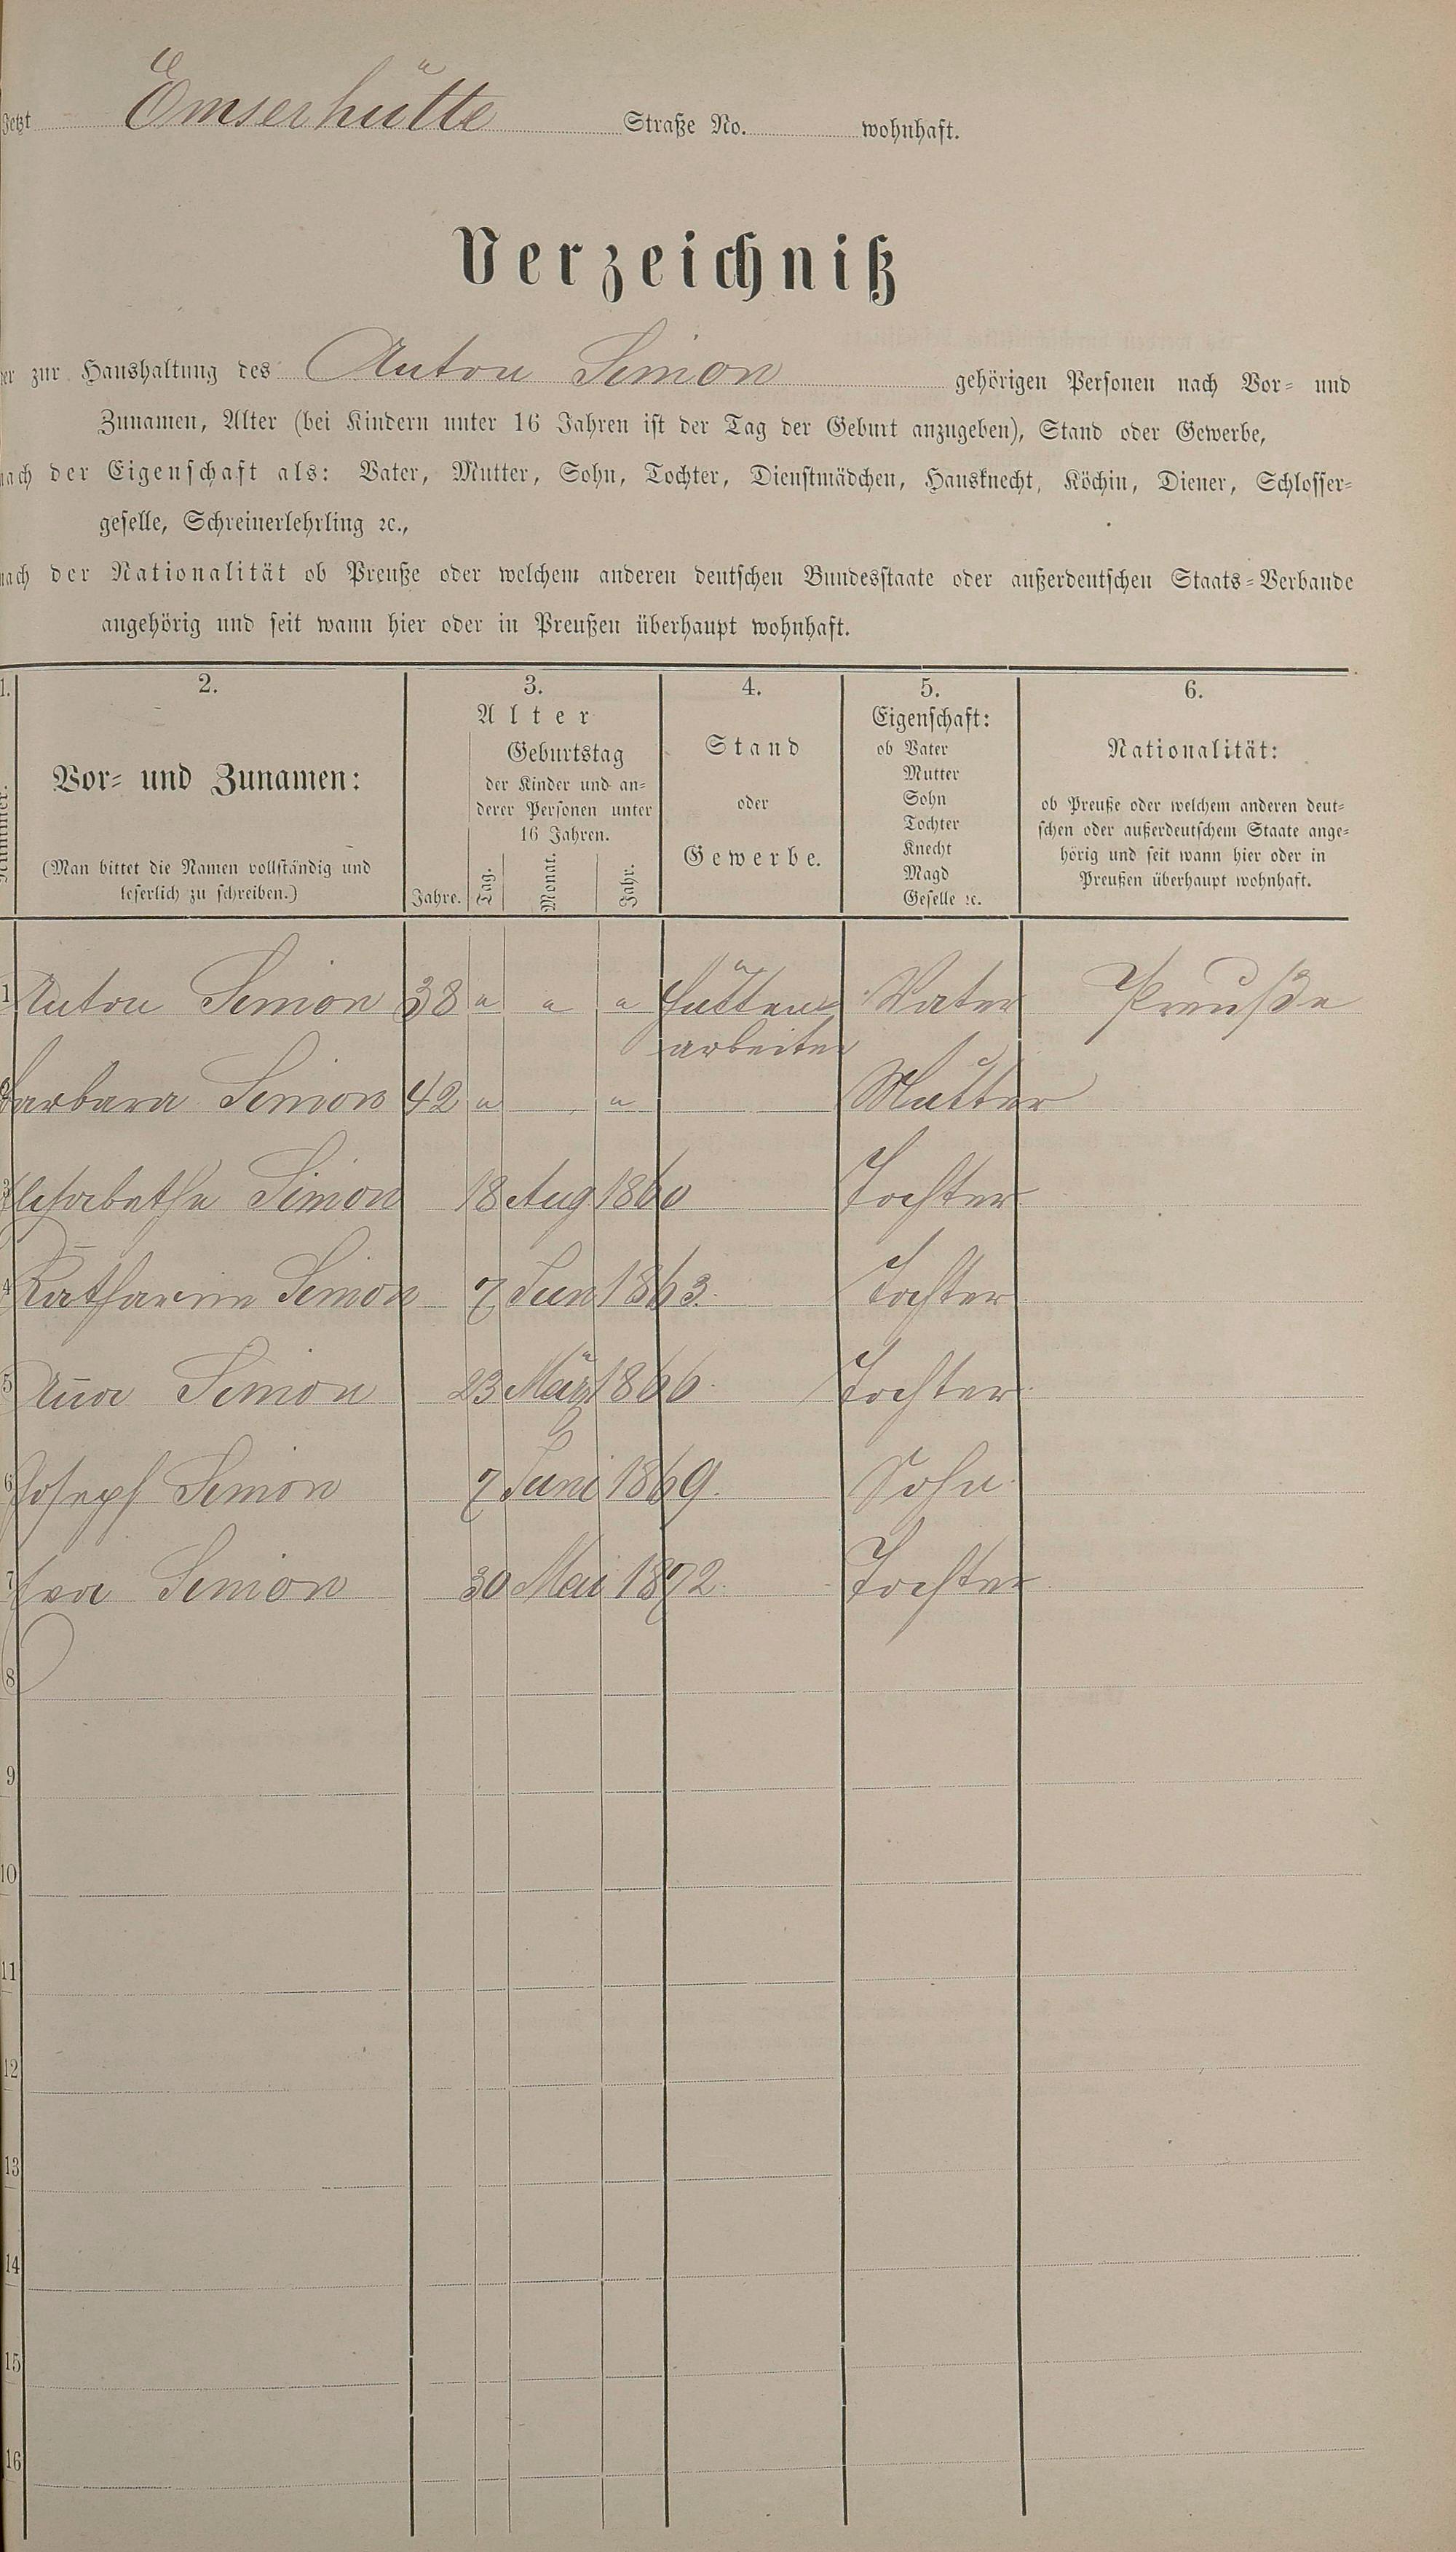 Jetzt Emserhütte Straße No. wohnhaft.
Verzeichniß
der zur Haushaltung des Anton Simon gehörigen Personen nach Vor- und
Zunamen, Alter (bei Kindern unter 16 Jahren ist der Tag der Geburt anzugeben), Stand oder Gewerbe,
nach der Eigenschaft als: Vater, Mutter, Sohn, Tochter, Dienstmädchen, Hausknecht, Köchin, Diener, Schlosser-
geselle, Schreinerlehrling ꝛc.,
nach der Nationalität ob Preuße oder welchem anderen deutschen Bundesstaate oder außerdeutschen Staats-Verbande
angehörig und seit wann hier oder in Preußen überhaupt wohnhaft.
1. 2. 3. 4. 5. 6.
Nummer.
Vor- und Zunamen:
(Man bittet die Namen vollständig und
leserlich zu schreiben.)
Alter
Jahre.
Geburtstag
der Kinder und an-
derer Personen unter
16 Jahren.
Tag. Monat. Jahr.
Stand
oder
Gewerbe.
Eigenschaft:
ob Vater
Mutter
Sohn
Tochter
Knecht
Magd
Geselle ꝛc.
Nationalität:
ob Preuße oder welchem anderen deut-
schen oder außerdeutschem Staate ange-
hörig und seit wann hier oder in
Preußen überhaupt wohnhaft.
1 Anton Simon 38 " " " Hütten- Vater Preuße
arbeiter
2 Barbara Simon 42 " " Mutter
3 Elisabetha Simon 18 Aug 1860 Tochter
4 Katharina Simon 7 Jun 1863. Tochter
5 Anna Simon 23 März 1866. Tochter
6 Joseph Simon 7 Juni 1869. Sohn
7 Eva Simon 30 Mai 1872. Tochter
8
9
10
11
12
13
14
15
16